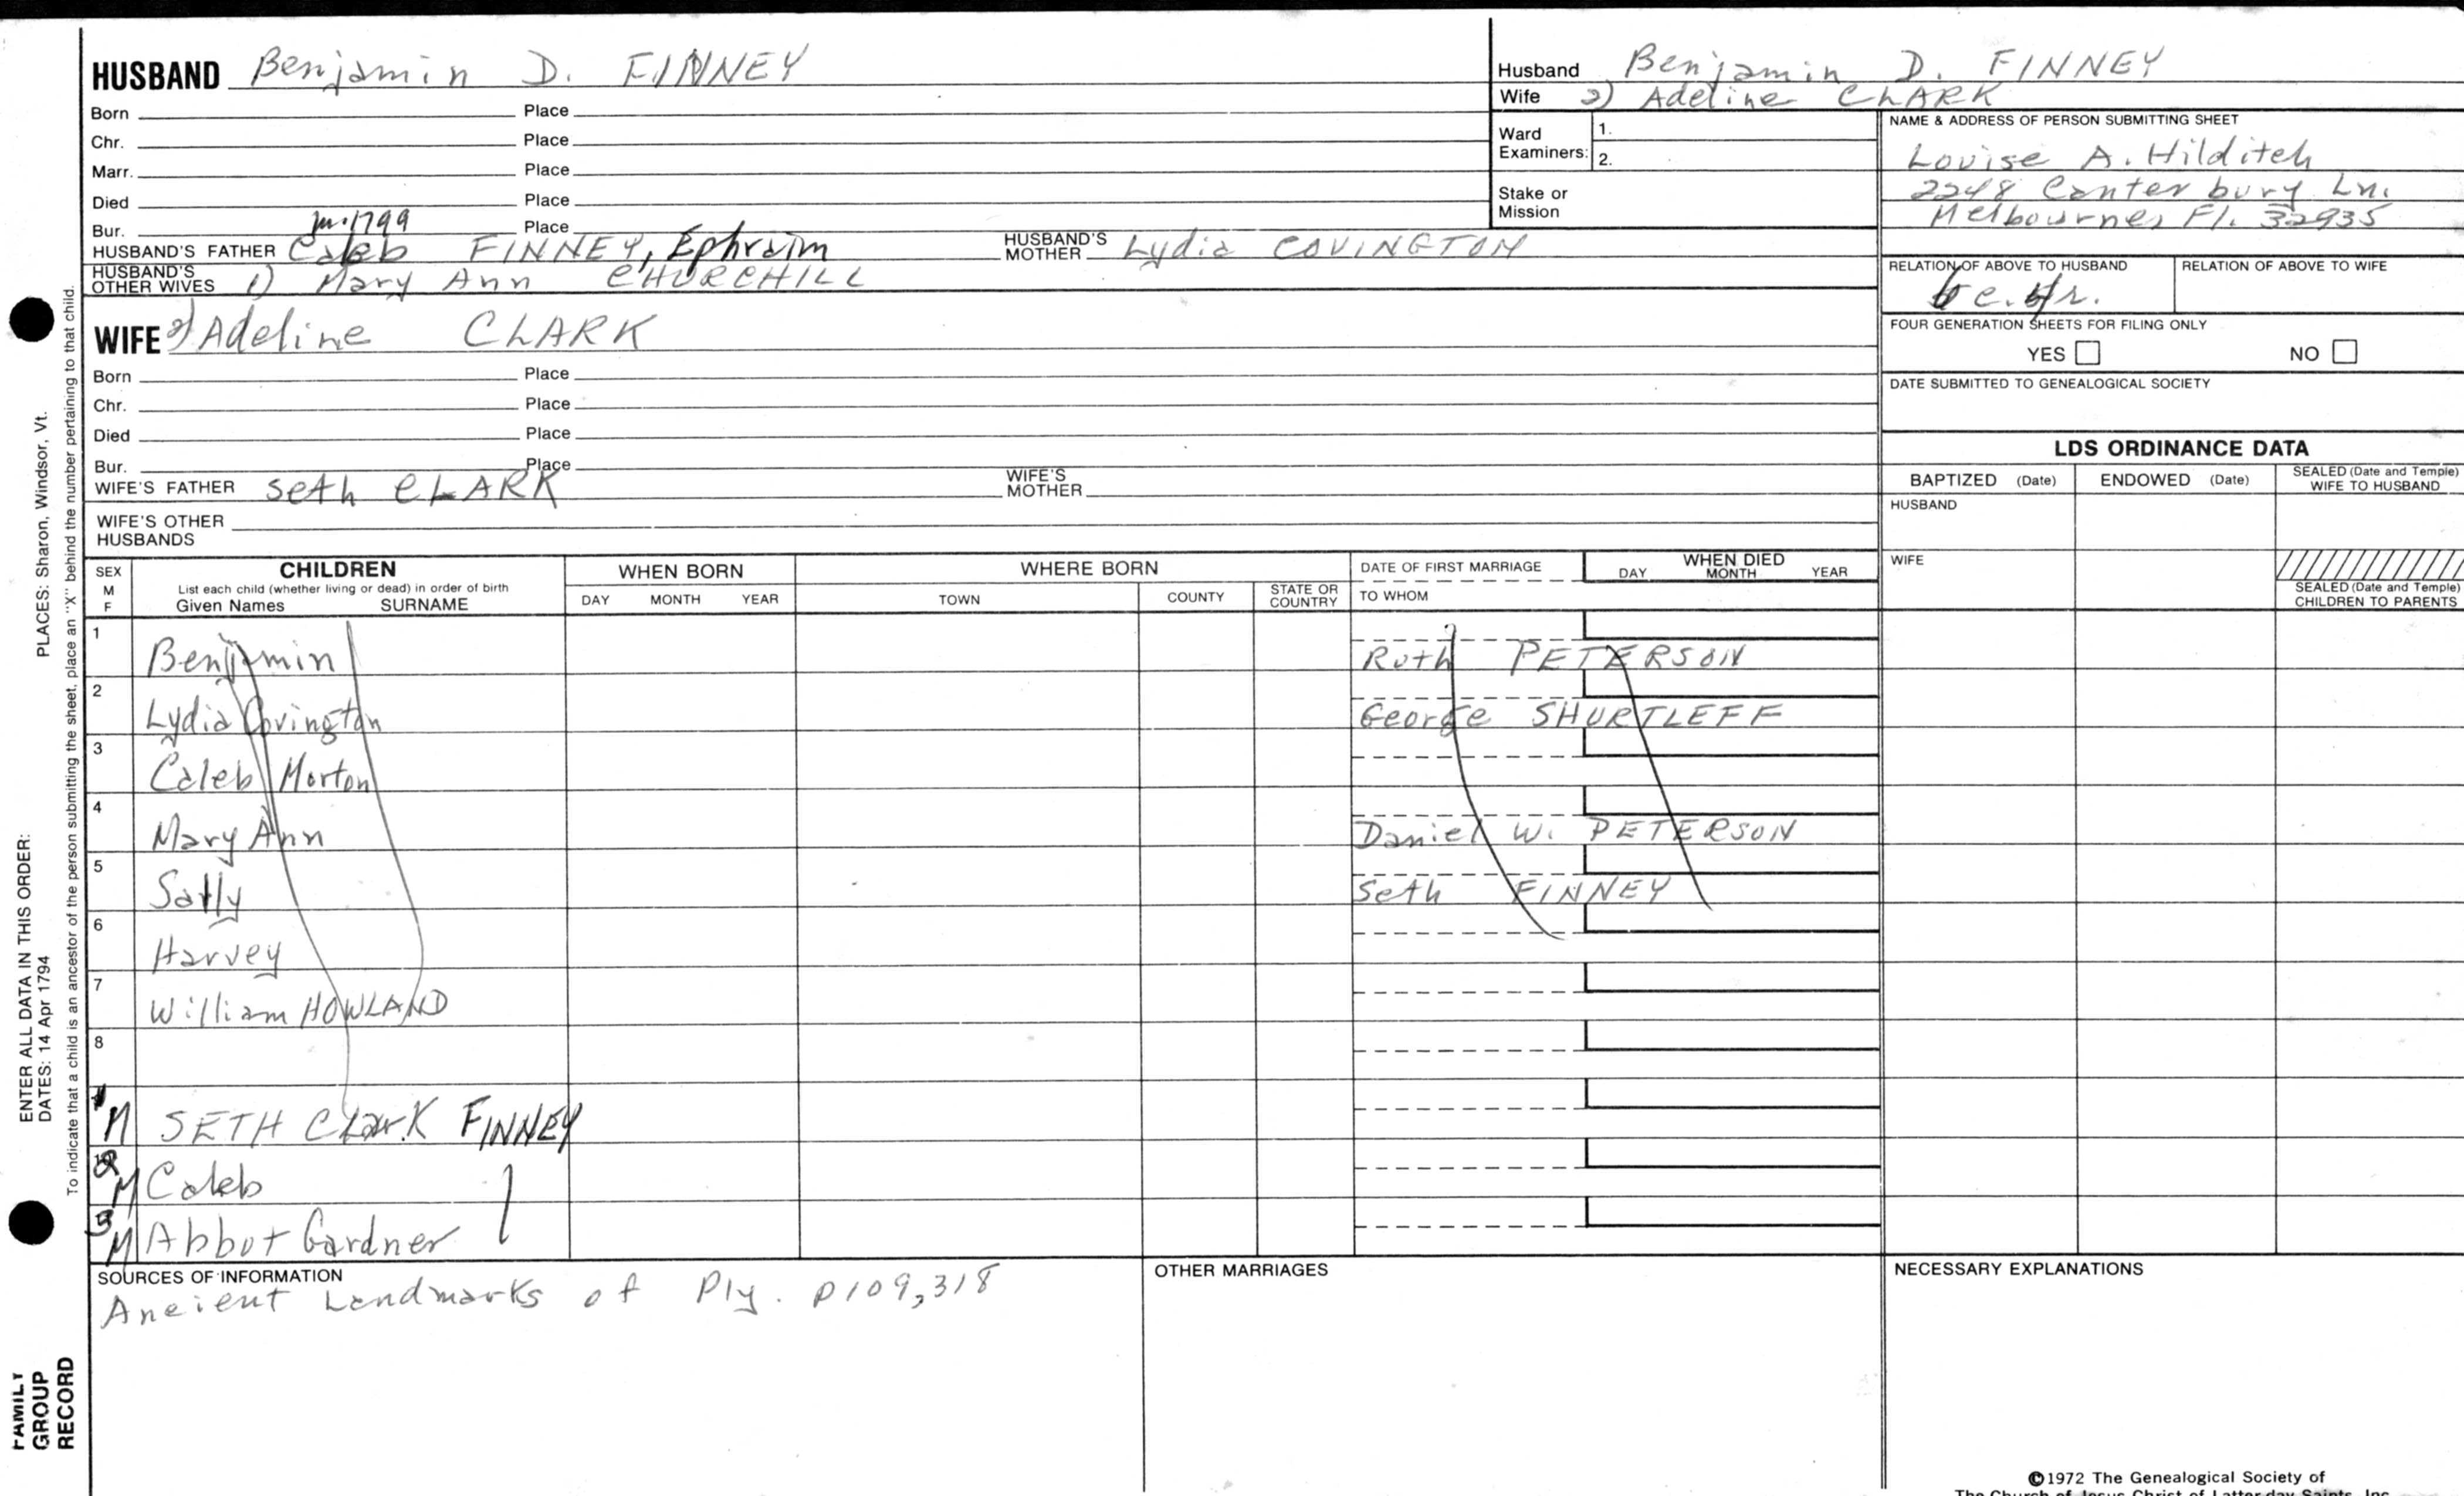 HUSBAND Benjamin D. FINNEY
Born Place
Chr. Place
Marr. Place
Died Place
Bur. Place
1799
HUSBAND'S FATHER Caleb FINNEY, Ephraim HUSBAND'S MOTHER Lydia COVINGTON
HUSBAND'S OTHER WIVES 1) Mary Ann CHURCHILL
WIFE 2) Adeline CLARK
Born Place
Chr. Place
Died Place
Bur. Place
WIFE'S FATHER Seth CLARK WIFE'S MOTHER
WIFE'S OTHER HUSBANDS
Husband Benjamin D. FINNEY
Wife 2) Adeline CLARK
Ward Examiners: 1.
2.
Stake or Mission
NAME & ADDRESS OF PERSON SUBMITTING SHEET
Louise A. Hilditch
2248 Canterbury Ln.
Melbourne, Fl. 32935
RELATION OF ABOVE TO HUSBAND RELATION OF ABOVE TO WIFE
FOUR GENERATION SHEETS FOR FILING ONLY
YES NO
DATE SUBMITTED TO GENEALOGICAL SOCIETY
LDS ORDINANCE DATA
BAPTIZED (Date) ENDOWED (Date) SEALED (Date and Temple) WIFE TO HUSBAND
HUSBAND
WIFE
SEALED (Date and Temple) CHILDREN TO PARENTS
SEX M F CHILDREN WHEN BORN WHERE BORN DATE OF FIRST MARRIAGE WHEN DIED
List each child (whether living or dead) in order of birth
Given Names SURNAME DAY MONTH YEAR TOWN COUNTY STATE OR COUNTRY TO WHOM DAY MONTH YEAR
1 Benjamin Ruth PETERSON
2 Lydia Covington George SHURTLEFF
3 Caleb Morton
4 Mary Ann Daniel W. PETERSON
5 Sally Seth FINNEY
6 Harvey
7 William HOWLAND
8
1 M SETH Clark FINNEY
2 M Caleb
3 M Abbot Gardner
SOURCES OF INFORMATION
Ancient Landmarks of Ply. p109,318
OTHER MARRIAGES
NECESSARY EXPLANATIONS
©1972 The Genealogical Society of
The Church of Jesus Christ of Latter-day Saints, Inc.
PLACES: Sharon, Windsor, Vt.
ENTER ALL DATA IN THIS ORDER:
DATES: 14 Apr 1794
To indicate that a child is an ancestor of the person submitting the sheet, place an "X" behind the number pertaining to that child.
FAMILY
GROUP
RECORD